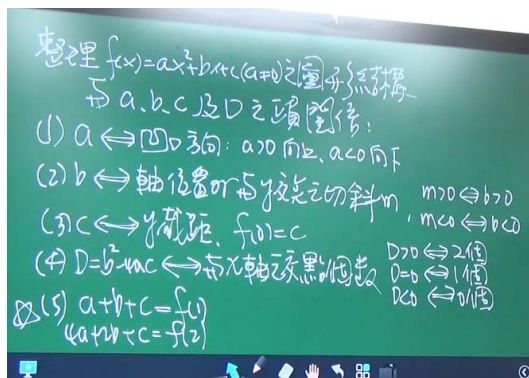 整理 f(x)=ax²+bx+c(a≠0)之圖形結構
與 a、b、c 及 D 之 關係:
(1) a ⟺ 凹口方向: a>0 向上、a<0 向下
(2) b ⟺ 軸位置or與y交點之切斜m, m>0 ⟺ b>0
m<0 ⟺ b<0
(3) c ⟺ y截距、f(0)=c
(4) D=b²-4ac ⟺ 與x軸之交點個數
D>0 ⟺ 2個
D=0 ⟺ 1個
D<0 ⟺ 0個
☆(5) a+b+c=f(1)
4a+2b+c=f(2)